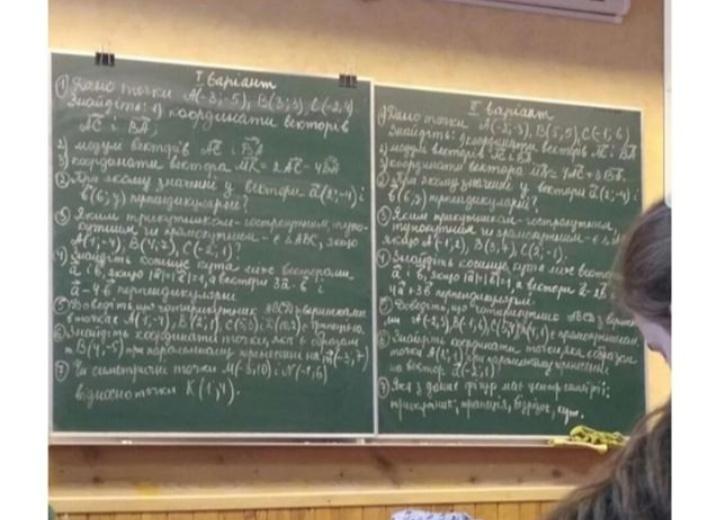 I варіант
① Дано точки A(-3;-5), B(3;3), C(-2;4)
Знайдіть: 1) координати векторів
AC і BA;
2) модулі векторів AC і BA
3) координати вектора MK = 2AC - 4BA
② При якому значенні y вектори a(2;-4) і
b(6;y) перпендикулярні?
③ Яким трикутником - гострокутним, тупо-
кутним чи прямокутним - є △ABC, якщо
A(1;-4), B(4;2), C(-2;1)?
④ Знайдіть косинус кута між векторами
a і b, якщо |a|=|b|=1, а вектори 3a - b і
a - 4b перпендикулярні
⑤ Доведіть, що чотирикутник ABCD з вершинами
в точках A(1;-4), B(2;1)
⑥ Знайдіть координати точки, яка є образом
т. B(4;-5) при паралельному перенесенні на m(-3;7)
⑦ Чи симетричні точки M(-3;10) і N(-1;6)
відносно точки K(1;4).
II варіант
Дано точки A(-2;-3), B(5;5), C(-1;6)
Знайдіть: 1) координати векторів AC і BA
2) модулі векторів AC і BA
3) координати вектора
② При якому значенні y вектори a(2;-4) і
b(6;y) перпендикулярні?
③ Яким трикутником - гострокутним,
тупокутним чи прямокутним - є △
якщо A(-1;2), B(3;4), C(2;-1).
④ Знайдіть косинус кута між
a і b, якщо |a|=|b|=1, а вектори a - 2b і
4a + 3b перпендикулярні
⑤ Доведіть, що чотирикутник ABCD з
є прямокутником
⑥ Знайдіть координати точки, яка є образом
точки A(2;1) при паралельному перенесенні
на вектор a(-2;1)
⑦ Яка з даних фігур має центр симетрії:
трикутник, трапеція, відрізок, кут.